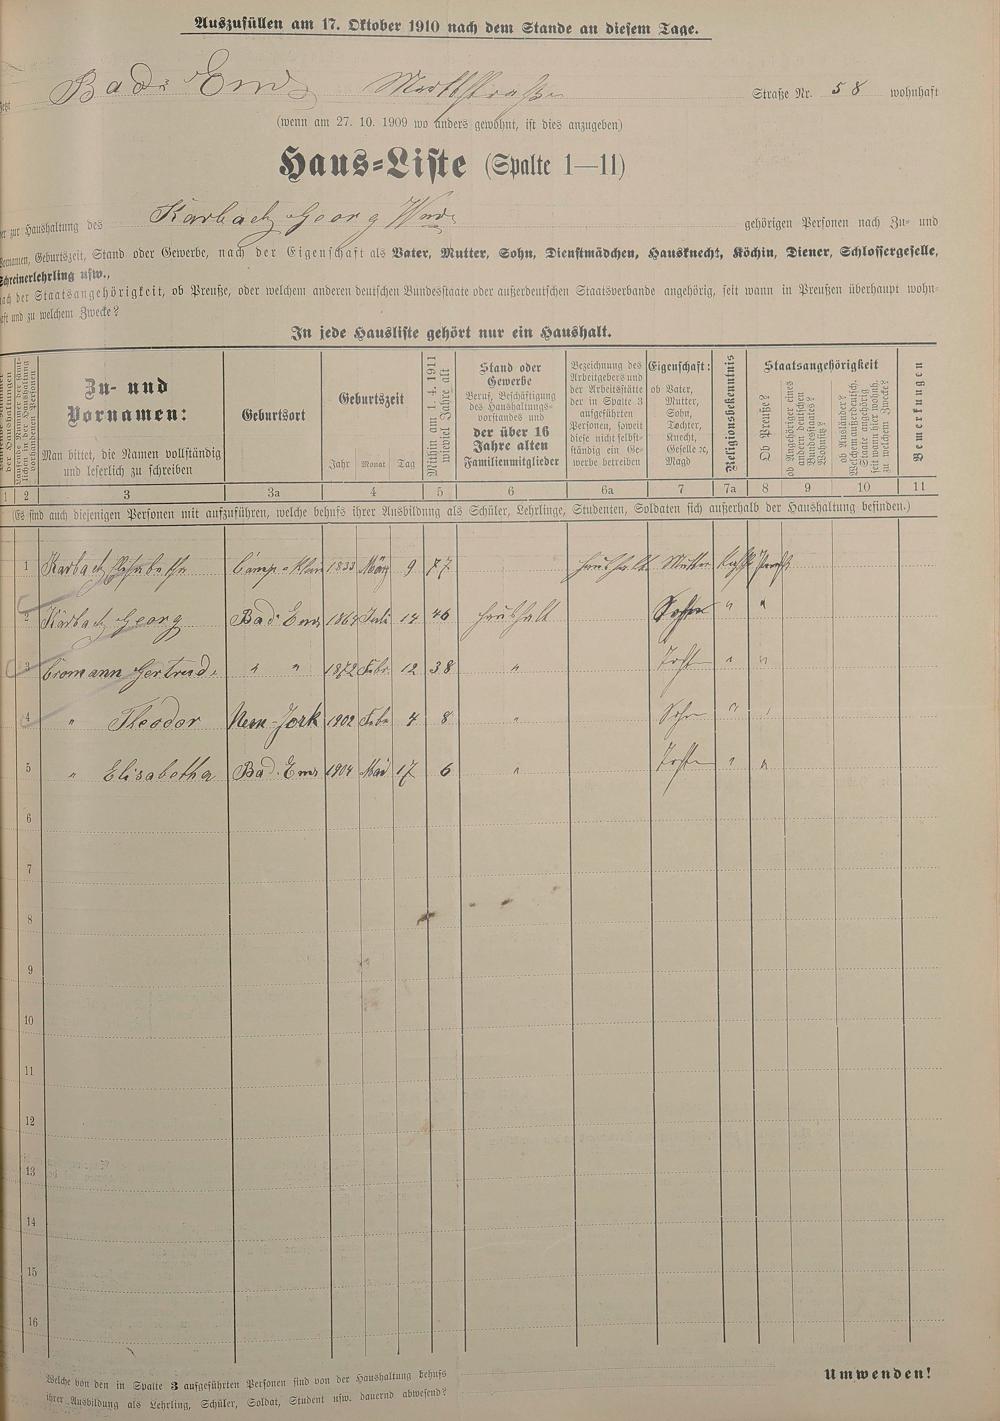 Auszufüllen am 17. Oktober 1910 nach dem Stande an diesem Tage.
Bad Ems Marktstraße Straße Nr. 58 wohnhaft
(wenn am 27. 10. 1909 wo anders gewohnt, ist dies anzugeben)
Haus-Liste (Spalte 1—11)
der zur Haushaltung des Karbach Georg Wwe. gehörigen Personen nach Zu- und
Vornamen, Geburtszeit, Stand oder Gewerbe, nach der Eigenschaft als Vater, Mutter, Sohn, Dienstmädchen, Hausknecht, Köchin, Diener, Schlossergeselle,
Schreinerlehrling usw.,
nach der Staatsangehörigkeit, ob Preuße, oder welchem anderen deutschen Bundesstaate oder außerdeutschen Staatsverbande angehörig, seit wann in Preußen überhaupt wohn-
haft und zu welchem Zwecke?
In jede Hausliste gehört nur ein Haushalt.
der Haushaltungen
vorhandenen Personen
Zu- und Vornamen:
Man bittet, die Namen vollständig und leserlich zu schreiben
Geburtsort
Geburtszeit
Jahr Monat Tag
Mithin am 1. 4. 1911 wieviel Jahre alt
Stand oder Gewerbe
Beruf, Beschäftigung des Haushaltungs-vorstandes und
der über 16 Jahre alten Familienmitglieder
Bezeichnung des Arbeitgebers und der Arbeitsstätte der in Spalte 3 aufgeführten Personen, soweit diese nicht selbst-ständig ein Ge-werbe betreiben
Eigenschaft:
ob Vater, Mutter, Sohn, Tochter, Knecht, Geselle ꝛc, Magd
Religionsbekenntnis
Staatsangehörigkeit
Ob Preuße?
ob Angehöriger eines andern deutschen Bundesstaates? Wohnsitz?
ob Ausländer? Welchem außerdeutsch. Staate angehörig seit wann hier wohnh. zu welchem Zwecke?
Bemerkungen
1 2 3 3a 4 5 6 6a 7 7a 8 9 10 11
(Es sind auch diejenigen Personen mit aufzuführen, welche behufs ihrer Ausbildung als Schüler, Lehrlinge, Studenten, Soldaten sich außerhalb der Haushaltung befinden.)
1 Karbach Elisabetha Camp a Rhein 1833 März 9 77 Haushalt Mutter Kath Preuß
2 Karbach Georg Bad Ems 1864 Juli 14 46 Haushalt Sohn " "
3 Cromann Gertrud " " 1872 Febr. 12 38 " Tocht " "
4 " Theodor New-Jork 1902 Febr 4 8 " Sohn " "
5 " Elisabetha Bad Ems 1904 Mai 17 6 " Tochter " "
6
7
8
9
10
11
12
13
14
15
16
Welche von den in Spalte 3 aufgeführten Personen sind von der Haushaltung behufs
ihrer Ausbildung als Lehrling, Schüler, Soldat, Student usw. dauernd abwesend?
Umwenden!